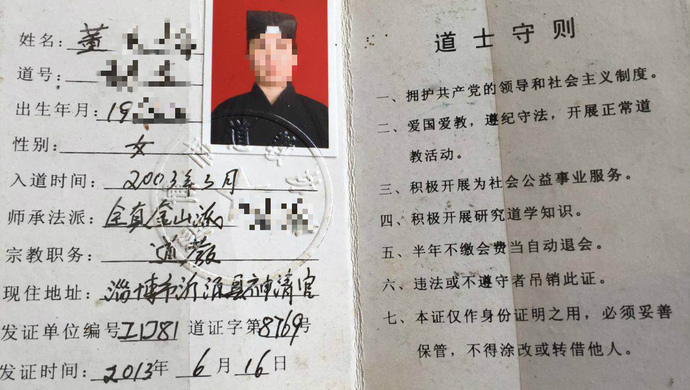 姓名: 董
道号:
出生年月: 19
性别: 女
入道时间: 2003年5月
师承法派: 全真金山派
宗教职务: 道教
现住地址: 淄博市沂源县神清宫
发证单位编号 道证字第8769号
发证时间: 2013年 6月16日
道士守则
一、拥护共产党的领导和社会主义制度。
二、爱国爱教，遵纪守法，开展正常道
教活动。
三、积极开展为社会公益事业服务。
四、积极开展研究道学知识。
五、半年不缴会费当自动退会。
六、违法或不遵守者吊销此证。
七、本证仅作身份证明之用，必须妥善
保管，不得涂改或转借他人。